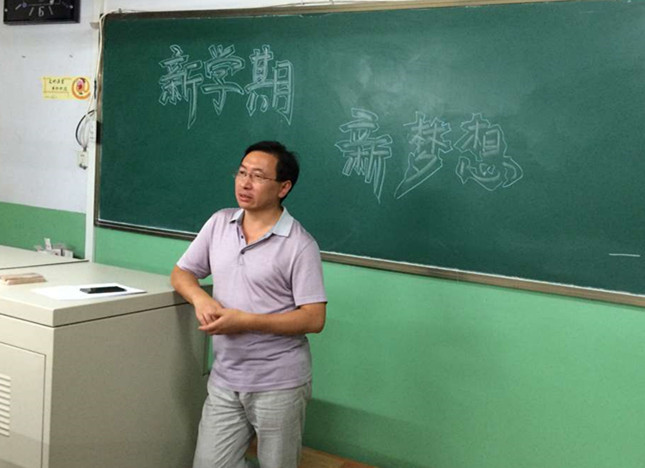 新学期
新梦想